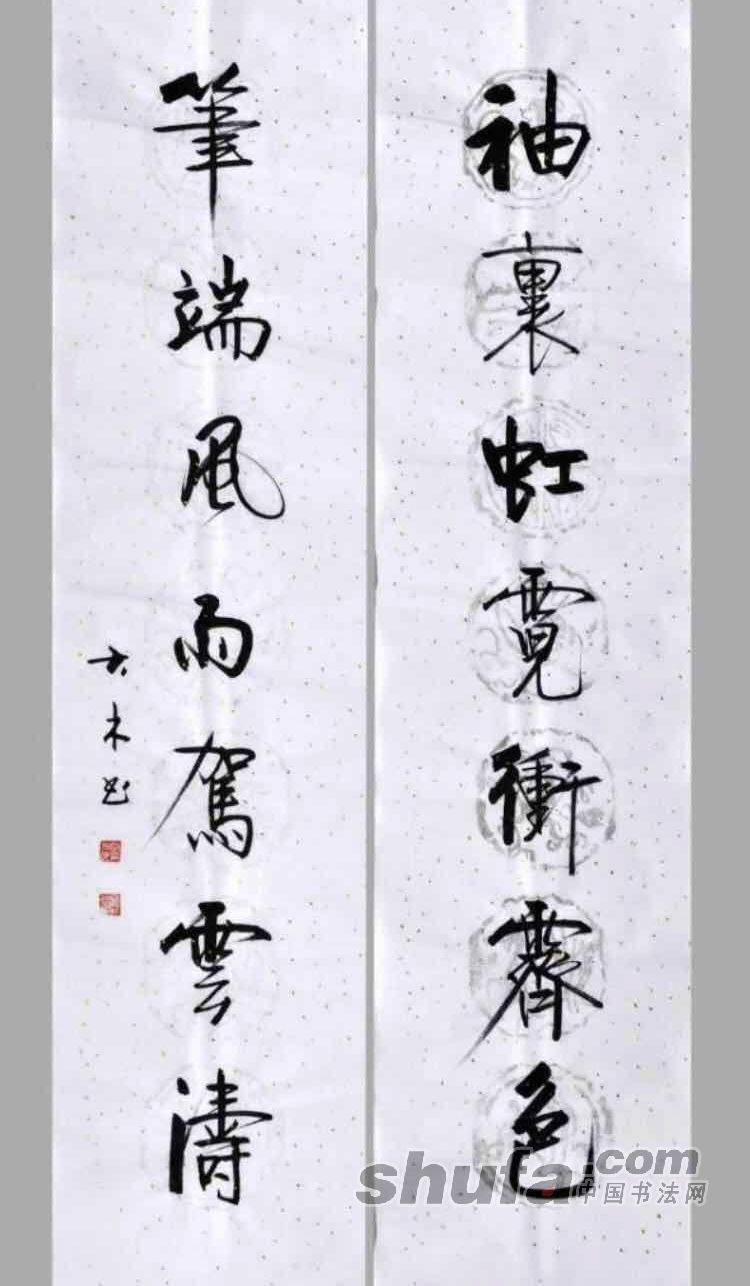 袖裏虹霓衝霽色
筆端風雨駕雲濤
大木书
shufa.com
中国书法网